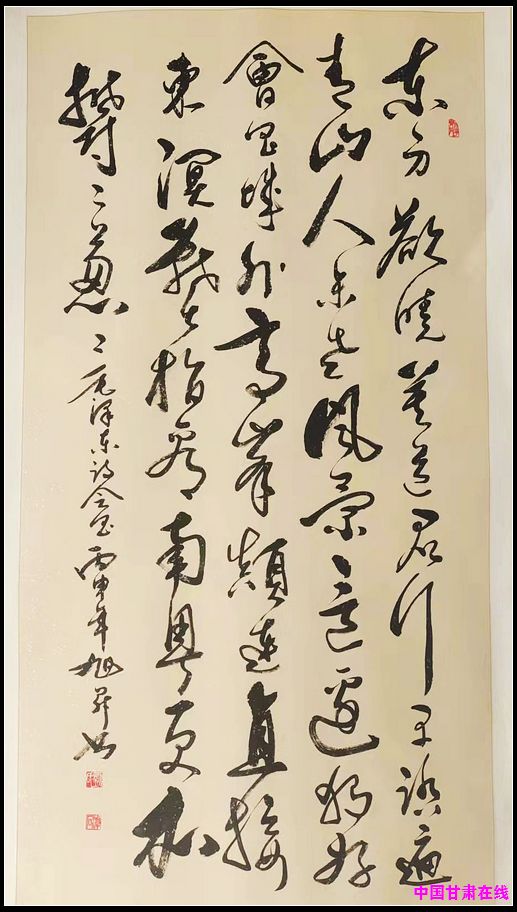 东方欲晓莫道君行早踏遍
青山人未老风景这边独好
會昌城外高峯颠连直接
東溟战士指看南粤更加
欝〻葱〻毛泽东词会昌丙申年旭升书
中国甘肃在线